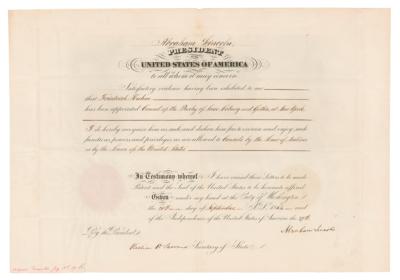 Abraham Lincoln,
PRESIDENT
OF THE
UNITED STATES OF AMERICA
to all whom it may concern
Satisfactory evidence having been exhibited to me
that Friedrich Kuhne
has been appointed Consul of the Duchy of Saxe Coburg and Gotha, at New York
I do hereby recognize him as such, and declare him free to exercise and enjoy such
functions, powers and privileges as are allowed to Consuls by the Law of Nations
or by the laws of the United States
In Testimony whereof I have caused these Letters to be made
Patent and the Seal of the United States to be hereunto affixed
Given under my hand at the City of Washington
the day of September A.D. and
of the Independence of the United States of America the
By the President,
Abraham Lincoln
William H. Seward Secretary of State